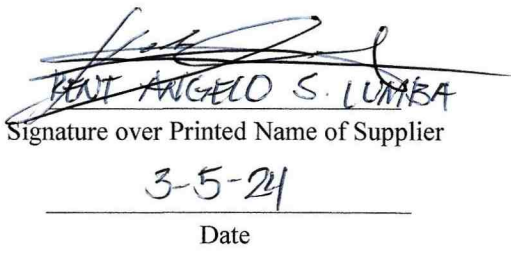 KENT ANGELO S. LUMBA
Signature over Printed Name of Supplier
3-5-24
Date